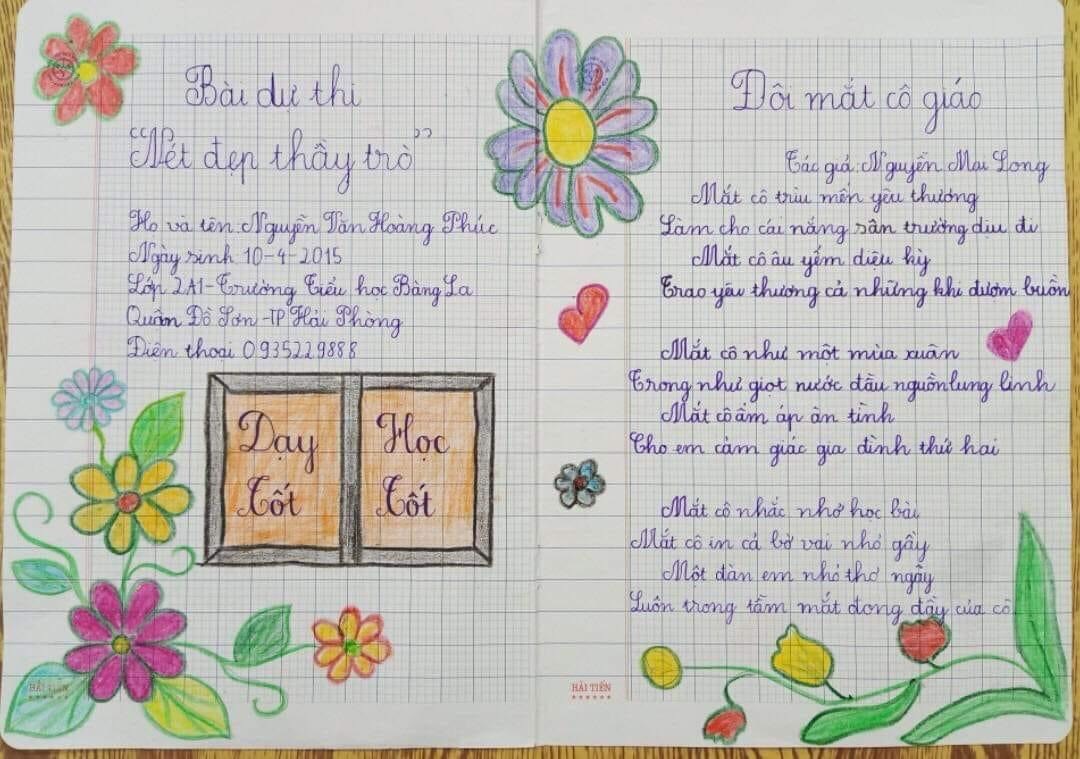 Bài dự thi
“Nét đẹp thầy trò”
Họ và tên: Nguyễn Văn Hoàng Phúc
Ngày sinh 10-4-2015
Lớp 2A1-Trường Tiểu học Bàng La
Quận Đồ Sơn -TP Hải Phòng
Điện thoại 0935229888
Dạy
Tốt
Học
Tốt
HẢI TIẾN
Đôi mắt cô giáo
Tác giả: Nguyễn Mai Long
Mắt cô trìu mến yêu thương
Làm cho cái nắng sân trường dịu đi
Mắt cô âu yếm diệu kỳ
Trao yêu thương cả những khi đượm buồn
Mắt cô như một mùa xuân
Trong như giọt nước đầu nguồn lung linh
Mắt cô ấm áp ân tình
Cho em cảm giác gia đình thứ hai
Mắt cô nhắc nhở học bài
Mắt cô in cả bờ vai nhỏ gầy
Một đàn em nhỏ thơ ngây
Luôn trong tầm mắt đong đầy của cô
HẢI TIẾN